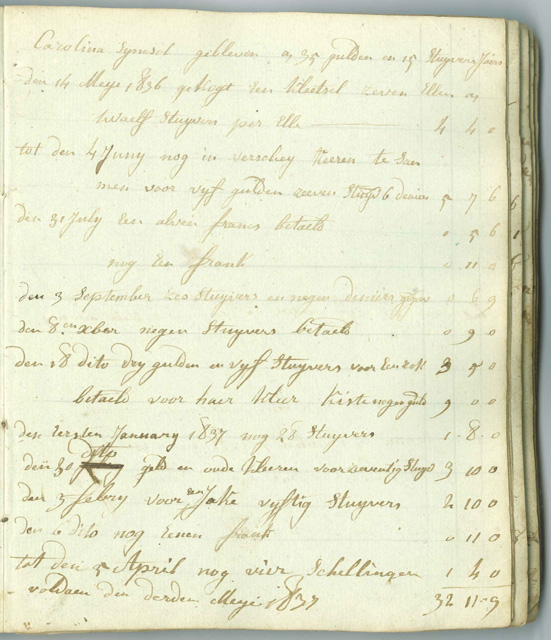 Carolina gebleven a 35 gulden en 15 Stuyvers Jaers
den 14 Meije 1836 gekogt een Kleetsel zeven Ellen a
twaelf Stuyvers per Elle 4 4 0
tot den 4 Juny nog in verschey Keeren te sam
men voor vyf gulden zeeven Stuyv 6 deniers 5 7 6
den 31 July een alven francs betaeld 0 5 6
nog een frank 0 11 0
den 3 September zes Stuyvers en negen deniers 0 6 9
den 8en Xber negen Stuyvers betaeld 0 9 0
den 18 dito dry gulden en vyf Stuyvers voor 3 5 0
betaeld voor haer Kleer Kiste negen guld 9 0 0
den Eersten January 1837 nog 28 Stuyvers 1 8 0
den 30 dito geld en oude Kleeren voor zeventig Stuyv 3 10 0
den 5 febry voor een Jake vyftig Stuyvers 2 10 0
den 6 dito nog Eenen frank 0 11 0
tot den 5 April nog vier Schellingen 1 4 0
voldaen den derden Meije 1837 32 11 9